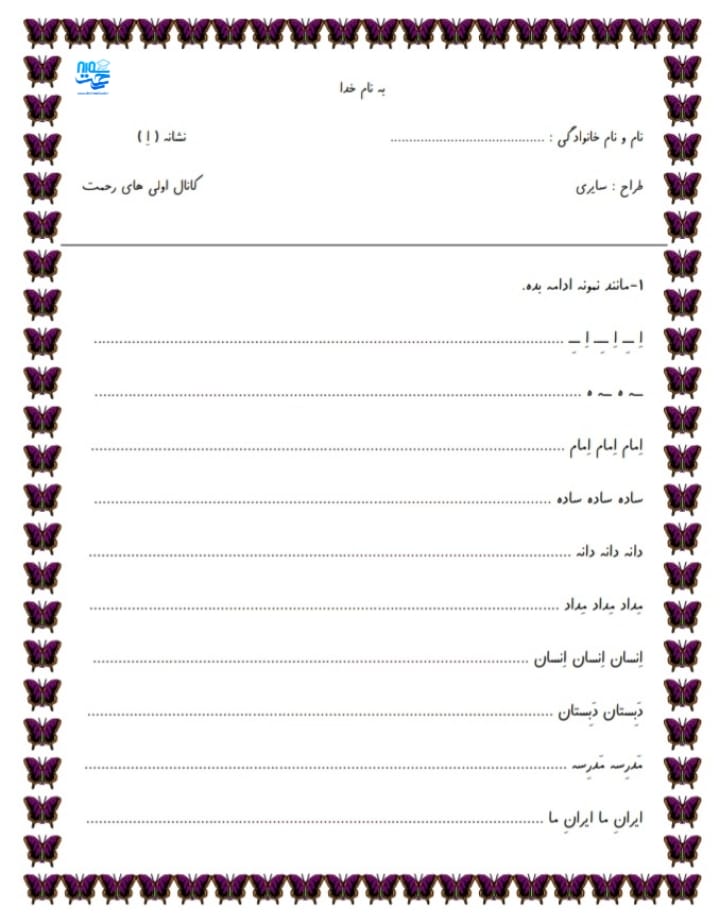 به نام خدا
نام و نام خانوادگی : ........................................ نشانه ( اِ )
طراح : سایری کانال اولی های رحمت
۱-مانند نمونه ادامه بده.
اِ ـِ اِ ـِ اِ ـِ ........................................
ـه ه ـه ه ........................................
اِمام اِمام اِمام ........................................
ساده ساده ساده ........................................
دانه دانه دانه ........................................
مِداد مِداد مِداد ........................................
اِنسان اِنسان اِنسان ........................................
دَبِستان دَبِستان ........................................
مَدرِسه مَدرِسه ........................................
ایرانِ ما ایرانِ ما ........................................